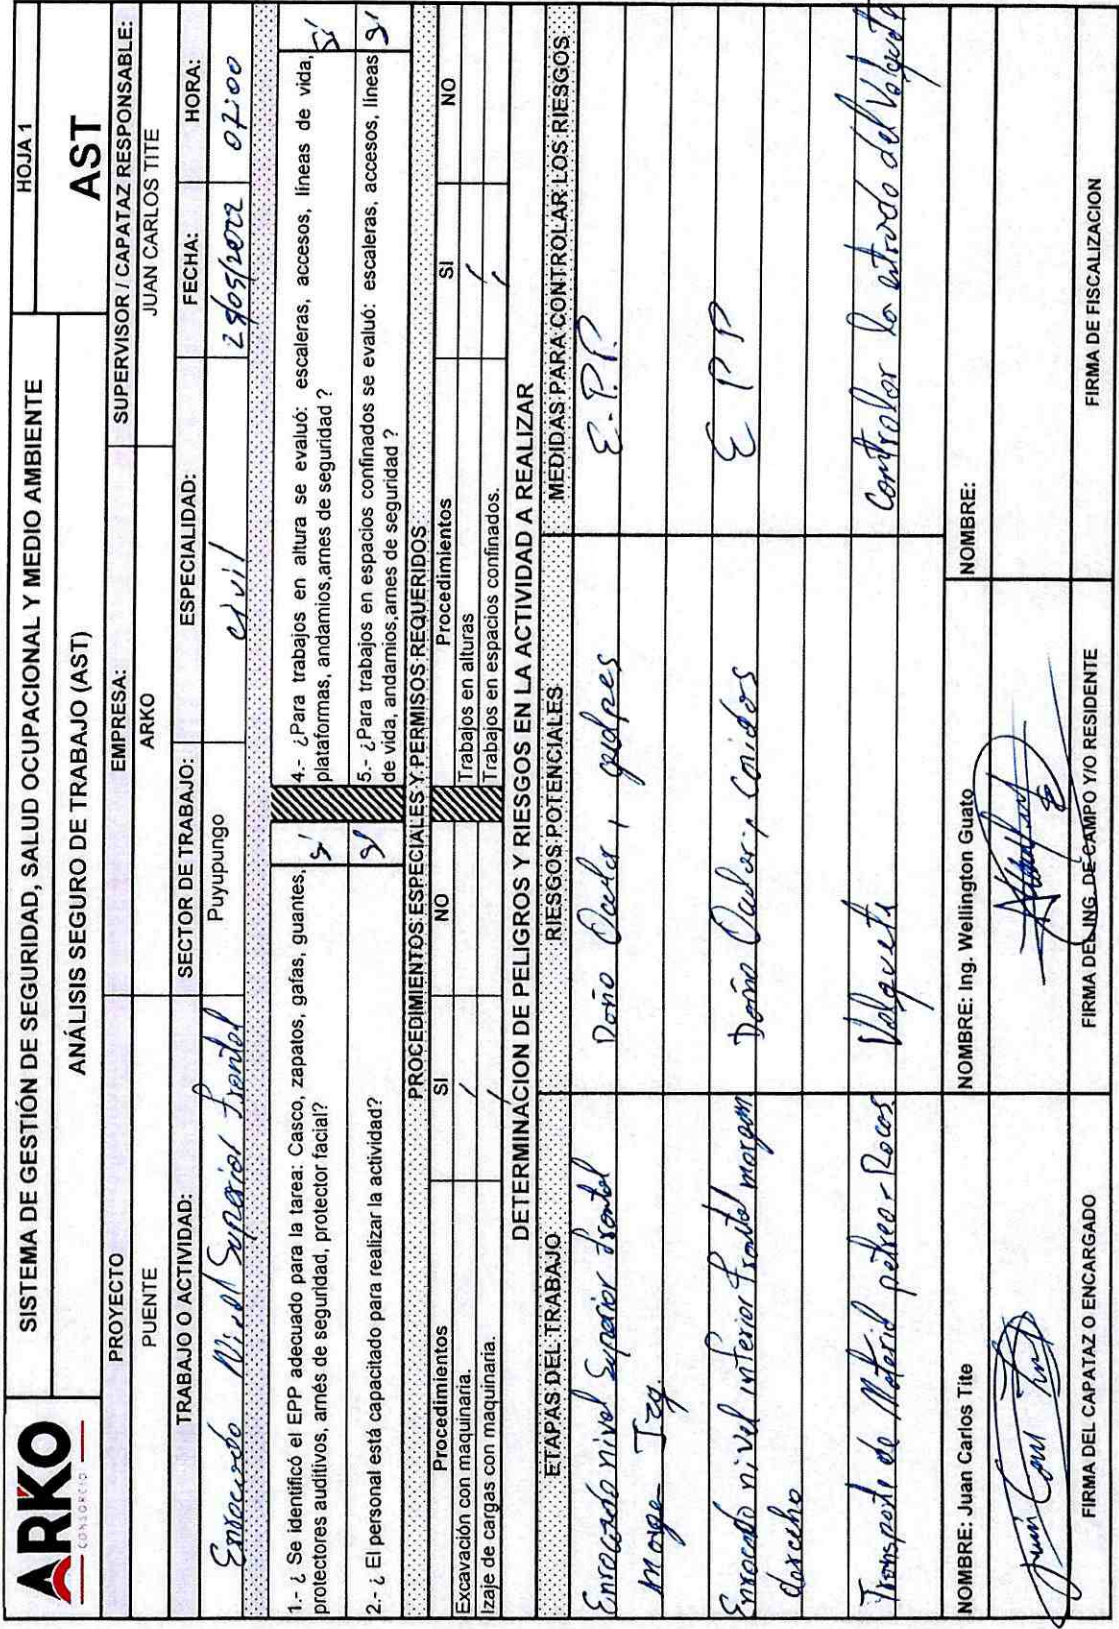 ARKO
CONSORCIO
SISTEMA DE GESTIÓN DE SEGURIDAD, SALUD OCUPACIONAL Y MEDIO AMBIENTE
HOJA 1
ANÁLISIS SEGURO DE TRABAJO (AST)
AST
PROYECTO
EMPRESA:
SUPERVISOR / CAPATAZ RESPONSABLE:
PUENTE
ARKO
JUAN CARLOS TITE
TRABAJO O ACTIVIDAD:
SECTOR DE TRABAJO:
ESPECIALIDAD:
FECHA:
HORA:
Enrocado Nivel Superior frontal
Puyupungo
civil
28/05/2022
07:00
1.- ¿ Se identificó el EPP adecuado para la tarea: Casco, zapatos, gafas, guantes,
protectores auditivos, arnés de seguridad, protector facial?
si
4.- ¿Para trabajos en altura se evaluó: escaleras, accesos, líneas de vida,
plataformas, andamios,arnes de seguridad ?
si
2.- ¿ El personal está capacitado para realizar la actividad?
si
5.- ¿Para trabajos en espacios confinados se evaluó: escaleras, accesos, líneas
de vida, andamios,arnes de seguridad ?
si
PROCEDIMIENTOS ESPECIALES Y PERMISOS REQUERIDOS
Procedimientos
SI
NO
Procedimientos
SI
NO
Excavación con maquinaria.
/
Trabajos en alturas
/
Izaje de cargas con maquinaria.
/
Trabajos en espacios confinados.
/
DETERMINACION DE PELIGROS Y RIESGOS EN LA ACTIVIDAD A REALIZAR
ETAPAS DEL TRABAJO
RIESGOS POTENCIALES
MEDIDAS PARA CONTROLAR LOS RIESGOS
Enrocado nivel Superior frontal
Daño Ocular, golpes
E.P.P.
Izq.
Enrocado nivel inferior frontal margen
Daño Ocular, Caidas
E P P
derecho
Transporte de Material pétreo - Rocas
Volqueta
Controlar la entrada del Volqueta
NOMBRE: Juan Carlos Tite
NOMBRE: Ing. Wellington Guato
NOMBRE:
FIRMA DEL CAPATAZ O ENCARGADO
FIRMA DEL ING. DE CAMPO Y/O RESIDENTE
FIRMA DE FISCALIZACION